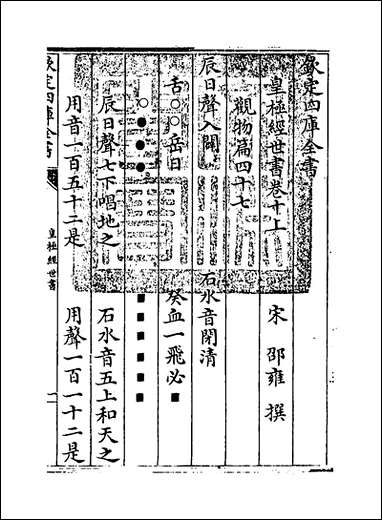 欽定四庫全書
皇極經世書卷十上
宋 邵雍 撰
觀物篇四十七
辰日聲入闢 石水音閉清
舌○○岳日 癸血一飛必■
○●●● ■■■■■■
辰日聲七下唱地之 石水音五上和天之
用音一百五十二是 用聲一百一十二是
欽定四庫全書 皇極經世書 一